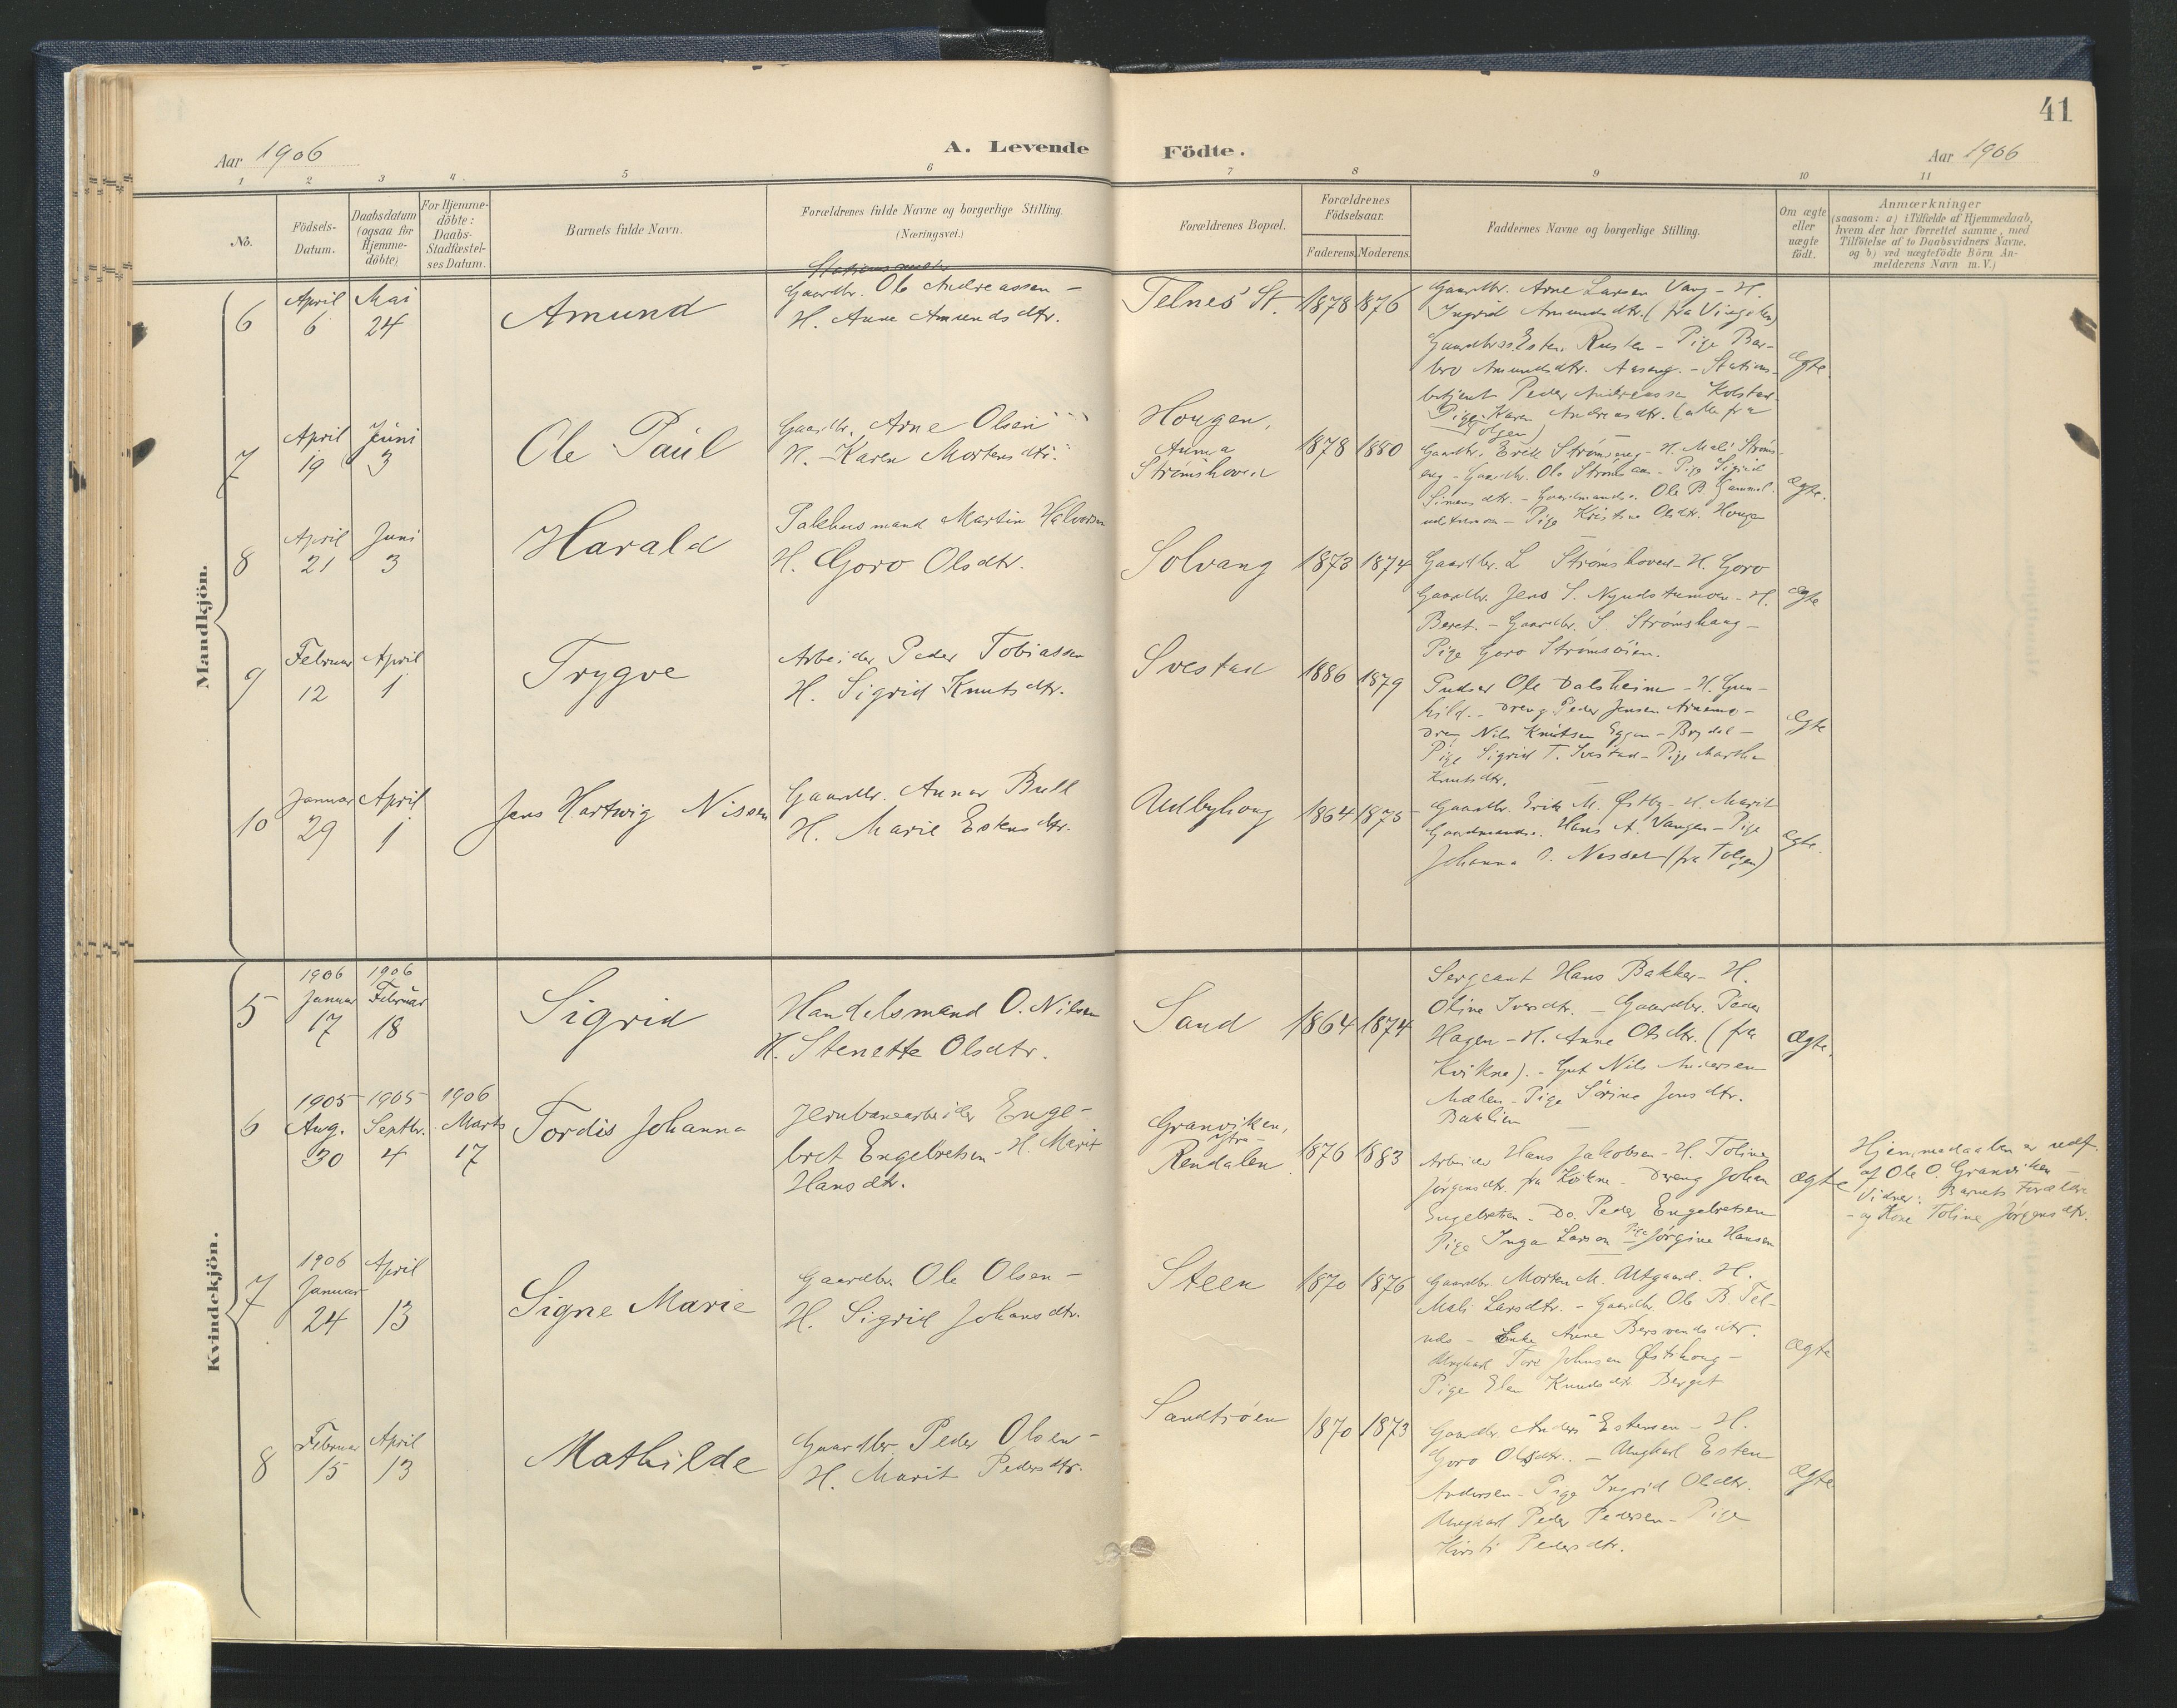 41
Aar 1906
A. Levende Födte.
Aar 1906
1 2 3 4 5 6 7 8 9 10 11
No.
Födsels-
Datum.
Daabsdatum
(ogsaa for
Hjemme-
döbte)
For Hjemme-
döbte:
Daabs-
Stadfæstel-
ses Datum.
Barnets fulde Navn.
Forældrenes fulde Navne og borgerlige Stilling.
(Næringsvei.)
Forældrenes Bopæl.
Forældrenes
Födselsaar.
Faderens. Moderens.
Faddernes Navne og borgerlige Stilling.
Om ægte
eller
uægte
födt.
Anmærkninger
(saasom: a) i Tilfælde af Hjemmedaab,
hvem der har forrettet samme, med
Tilföielse af to Daabsvidners Navne.
og b) ved uægtefödte Börn An-
melderens Navn m.V.)
Mandkjön.
6
April
6
Mai
24
Amund
Gaardbr. Ole Andreassen -
H. Anne Amundsdtr.
Telnes St.
1878 1876
Gaardbr. Arne Larsen Vang - H.
Ingrid Amundsdtr. (fra Vingelen)
Gaardbr. Esten Rusten - Pige Bar-
bro Amundsdtr. Aaseng. - Stations-
betjent Peder Andreassen Kolstad -
Pige Karen Andreasdtr. (alle fra
Tolgen)
Ægte.
7
April
19
Juni
3
Ole Paul
Gaardbr. Arne Olsen
H. Karen Mortensdtr.
Hougen,
Auma
Strømshoved
1878 1880
Gaardbr. Erik Strømseng - H. Mali Strøms-
eng - Gaardbr. Ole - Pige Sigrid
Simensdtr. - Gaardmands. Ole B. Gammel-
- Pige Kristine Olsdtr. Hougen
ægte.
8
April
21
Juni
3
Harald
Pakhusmand Martin Halvorsen
H. Goro Olsdtr.
Solvang
1873 1874
Gaardbr. L Strømshoved - H. Goro
Gaardbr. Jens S. Nyudstumoen - H.
Beret. - Gaardbr. S. Strømshaug -
Pige Goro Strømsøien.
ægte
9
Februar
12
April
1
Trygve
Arbeider Peder Tobiassen
H. Sigrid Knutsdtr.
Svestad
1886 1879
Pudser Ole Dalsheim - H. Gun-
hild. - Dreng Peder Jensen -
Dreng Nils Knutsen Eggen - Brydal -
Pige Sigrid T. Svestad - Pige Martha
Knutsdtr.
Ægte
10
Januar
29
April
1
Jens Hartwig Nissen
Gaardbr. Annar Bull
H. Marie Estensdtr.
Udbyhoug
1864 1875
Gaardbr. Erik M. Østby - H. Marit
Gaardmands. Hans A. Vangen - Pige
Johanna O. (fra Tolgen)
ægte.
Kvindekjön.
5
1906
Januar
17
1906
Februar
18
Sigrid
Handelsmand O. Nilsen
H. Stenette Olsdtr.
Sand
1864 1874
Sergeant Hans Bakken - H.
Oline Iversdtr. - Gaardbr. Peder
Hagen - H. Anne Olsdtr. (fra
Kvikne). - Gut Nils Andersen
Mælen - Pige Sørine Jonsdtr.
Baklien
Ægte.
6
1905
Aug.
30
1905
Septbr.
4
1906
Marts
17
Tordis Johanna
Jernbanearbeider Enge-
bret Engebretsen - H. Marit
Hansdtr.
Granviken,
Ytre-
Rendalen
1876 1883
Arbeider Hans Jakobsen - H. Toline
Jørgensdtr. fra Kvikne - Dreng Johan
Engebretsen - Do. Peder Engebretsen
Pige Inga Larsen Pige Jørgine Hansen
ægte
Hjemmedaaben er udf.
af Ole O. Granviken -
Vidner: Barnets Forældre
- og Kone Toline Jørgensdtr.
7
1906
Januar
24
April
13
Signe Marie
Gaardbr. Ole Olsen -
H. Sigrid Johansdtr.
Steen
1870 1876
Gaardbr. Morten M. Utgaard. H.
Mali Larsdtr. - Gaardbr. Ole B. Tel-
- Enke Anne Bersvendsdtr.
Ungkarl Tore Johnsen Østihoug -
Pige Elen Knudsdtr. Berget
ægte
8
Februar
15
April
13
Mathilde
Gaardbr. Peder Olsen -
H. Marit Pedersdtr.
Sandtrøen
1870 1873
Gaardbr. Anders Estensen - H.
Goro Olsdtr. - Ungkarl Esten
Andersen - Pige Ingrid Olsdtr.
Ungkarl Peder Pedersen - Pige
Kirsti Pedersdtr.
ægte